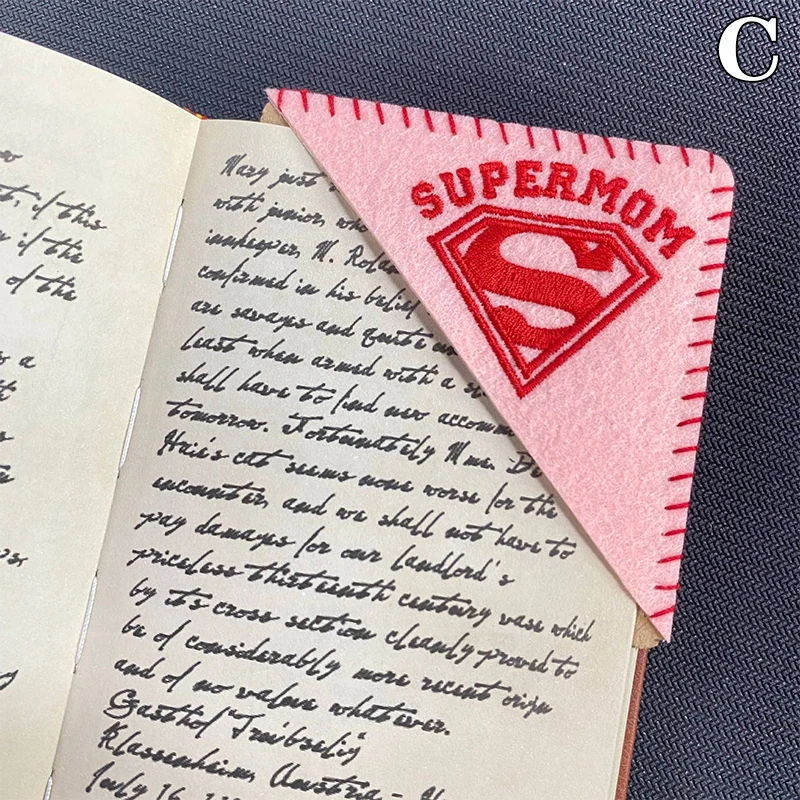 C
SUPERMOM
S
t, if this
if the
of the
s a
Mary just
with junior, who
innkeeper, M. Rolan
confirmed in his belief
are savages and quite
least when armed with a
shall have to find new accomm
tomorrow. Fortunately Mme. Be
Haie's cat seems none worse for the
encounter, and we shall not have to
pay damages for our landlord's
priceless thirteenth century vase which
by its cross section cleanly proved to
be of considerably more recent origin
and of no value whatever.
Gasthof "Treibselig"
Klassenheim, Austria -
July 16,